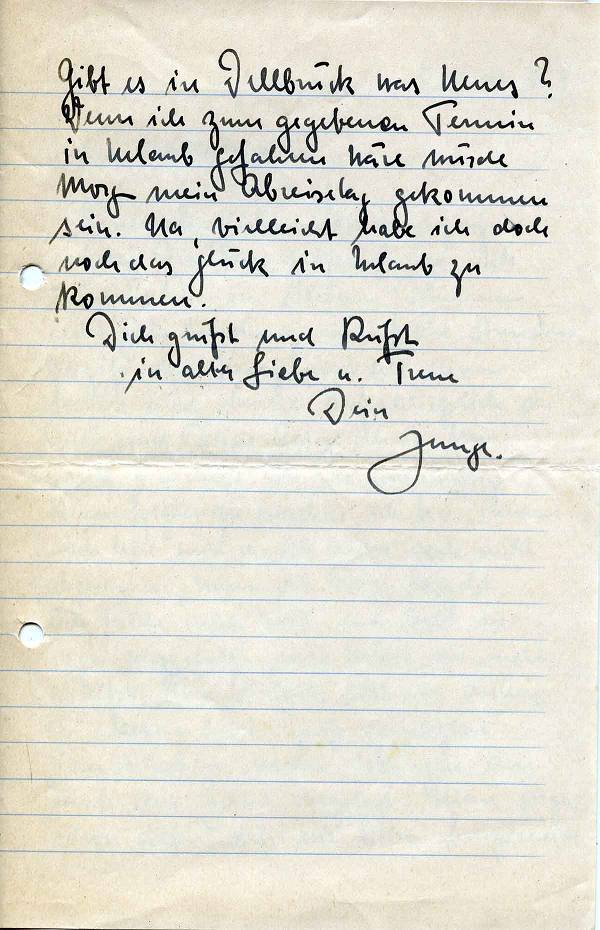 Gibt es in Dellbrück was Neues?
Wenn ich zum gegebenen Termin
in Urlaub gefahren wäre würde
Morg mein Abreisetag gekommen
sein. Na, vielleicht habe ich doch
noch das Glück in Urlaub zu
kommen.
Dich grüßt und küßt
in alter Liebe u. Treue
Dein
Junge.